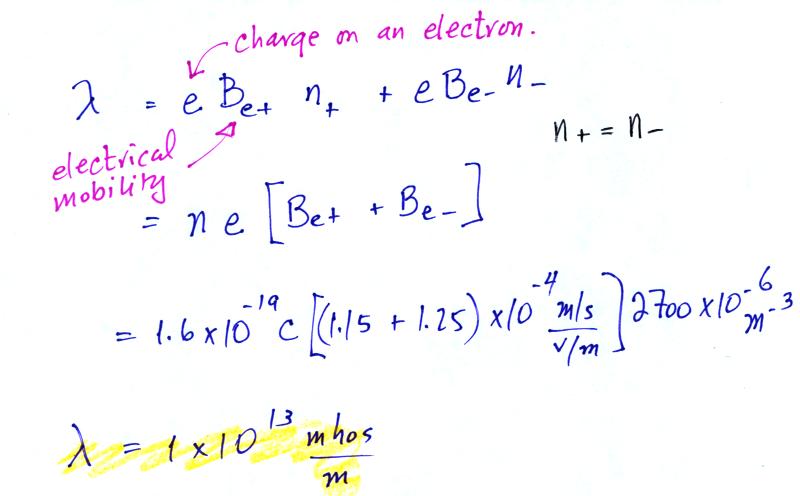 charge on an electron.
λ = e Be+ n+ + e Be- n-
n+ = n-
electrical
mobility
= n e [Be+ + Be-]
= 1.6 x 10^-19 C [(1.15 + 1.25) x 10^-4 m/s / V/m] 2700 x 10^-6 m^-3
λ = 1 x 10^13 mhos / m